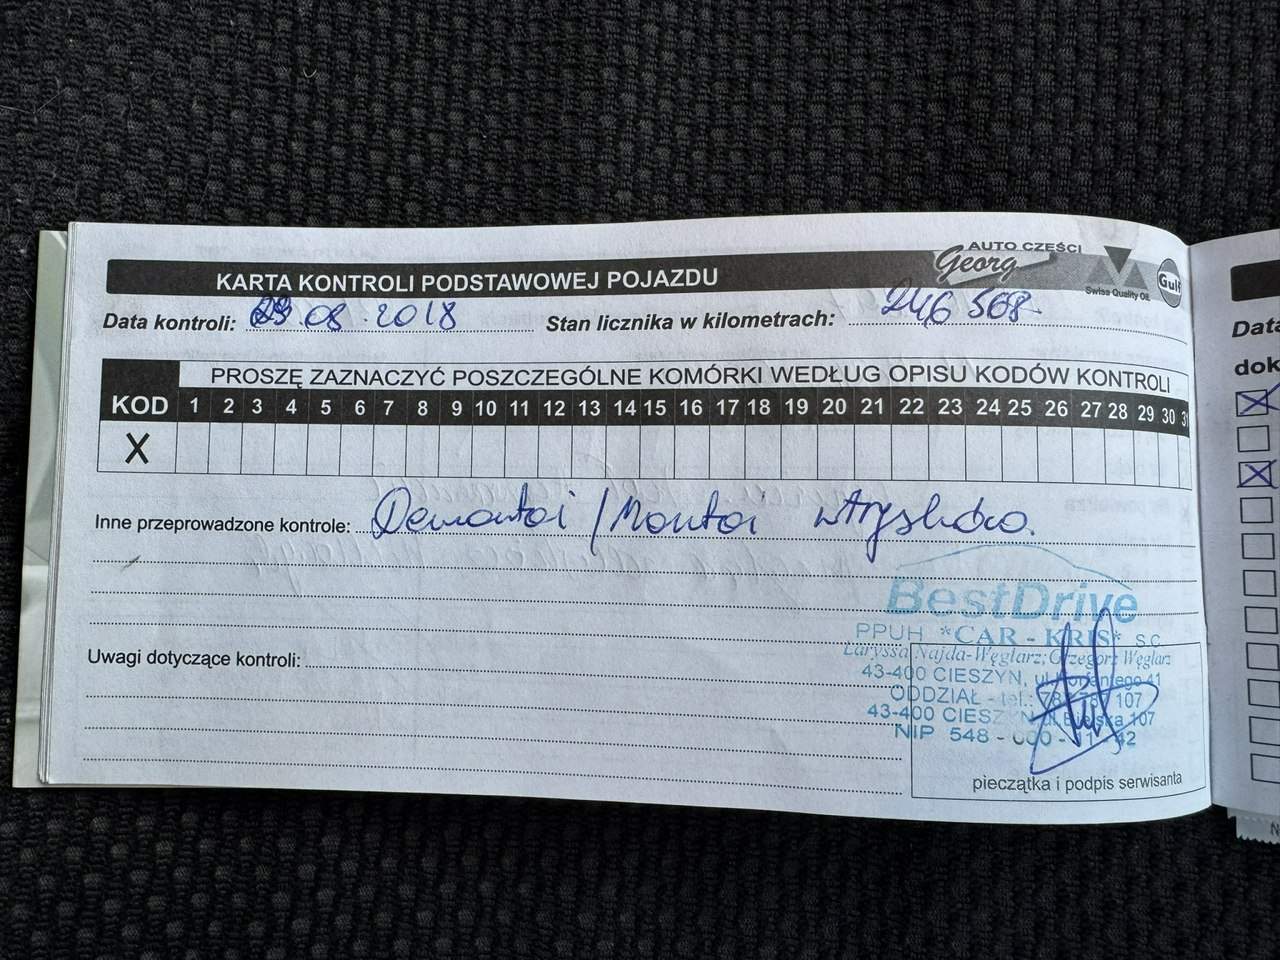 AUTO CZĘŚCI
Georg
Swiss Quality Oil
Gulf
KARTA KONTROLI PODSTAWOWEJ POJAZDU
Data kontroli: .08.2018 Stan licznika w kilometrach: 246 568
PROSZĘ ZAZNACZYĆ POSZCZEGÓLNE KOMÓRKI WEDŁUG OPISU KODÓW KONTROLI
KOD 1 2 3 4 5 6 7 8 9 10 11 12 13 14 15 16 17 18 19 20 21 22 23 24 25 26 27 28 29 30 31
X
Inne przeprowadzone kontrole: Demontaż / Montaż wtrysków.
BestDrive
PPUH *CAR - KRIS* s.c.
Laryssa Najda-Węglarz; Grzegorz Węglarz
Uwagi dotyczące kontroli:
43-400 CIESZYN, ul. 41
ODDZIAŁ - tel.: 107
43-400 CIESZYN, ul. Bielska 107
NIP 548 -
pieczątka i podpis serwisanta
Data
dok